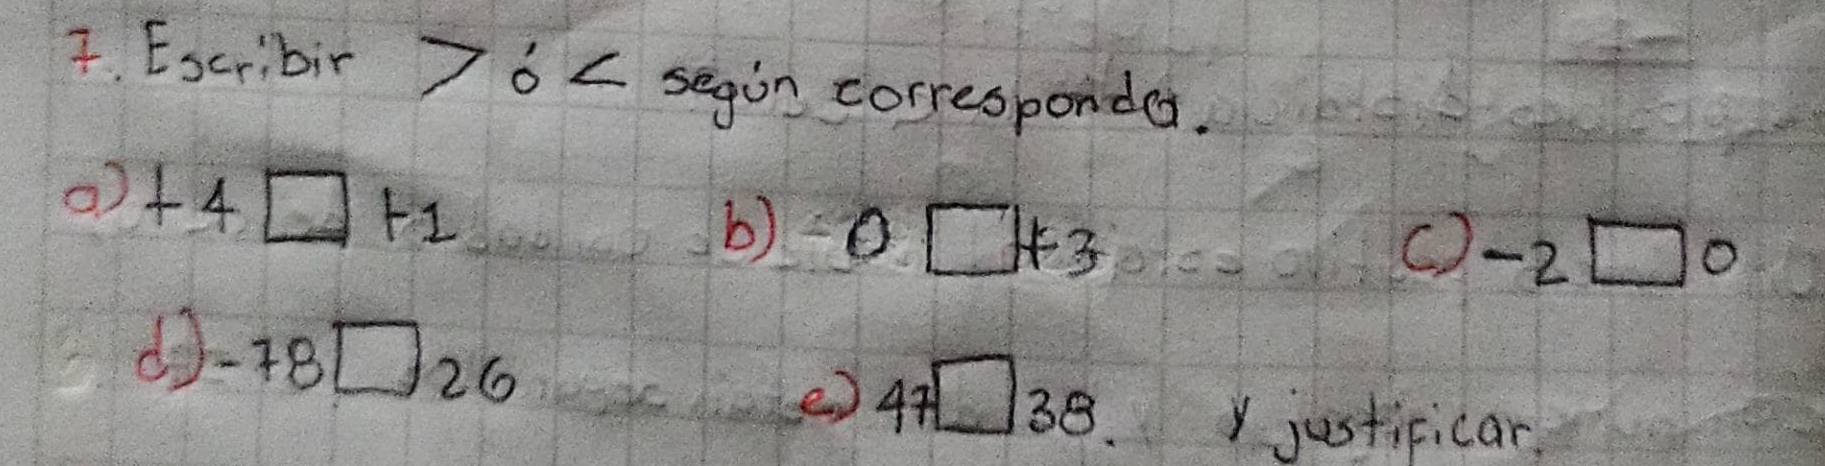 7. Escribir > ó < según corresponda.
a) +4 □ +1 b) 0 □ +3 c) -2 □ 0
d) -78 □ 26 e) 47 □ 38. y justificar.